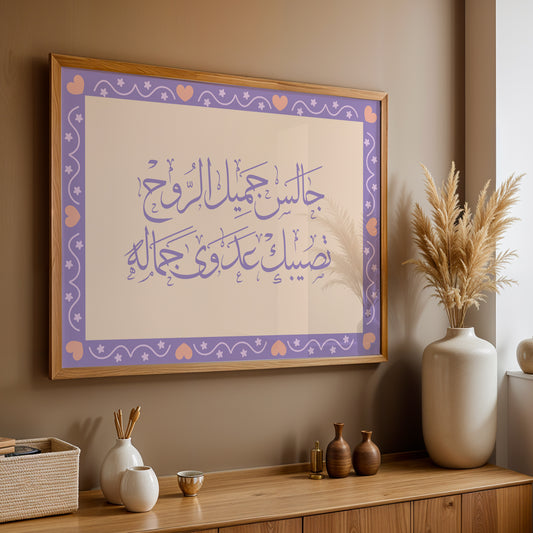 جَالِس جَمِيل الرُّوح
تصِيبك عَدْوَى جَمالِه